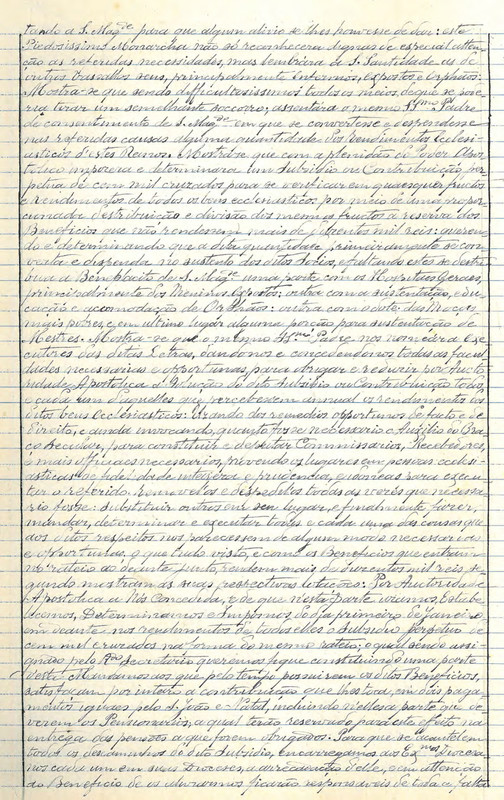 tando a S. Mag.de para que algum alivio se lhes pouvesse de dar: este
Piedosissimo Monarcha não só reconhecera dignas de especial atten-
ção as referidas necessidades, mas lembrára a S. Santidade as de
outros Vassallos seus, principalmente Enfermos, Expostos e Orphãos:
Mostra-se que sendo difficultosissimos todos os meios, de que se pode-
ria tirar um semelhante soccorro, assentára o mesmo S.mo Padre
de consentimento de S. Mag.de em que se convertesse e despendesse
nas referidas causas alguma quantidade dos rendimentos Eccle-
siasticos d'estes Reinos. Mostra-se que com a plenidão do Poder Apos-
tolico impozera e determinara um Subsidio ou Contribuição per-
petua de cem mil cruzados para se verificar em quaesquer fructos
e rendimentos de todos os bens ecclesiasticos por meio de uma propor-
cionada distribuição e divisão dos mesmos fructos á reserva dos
Beneficios que não rendessem mais de duzentos mil reis: queren-
do e determinando que a dita quantidade primeiramente se con-
verta e dispenda no sustento dos ditos e faltando estes se destri-
bua a Beneplacito de S. Mag.de uma parte com os Hospitaes Geraes,
principalmente dos Meninos Expostos: outra com a sustentação, edu-
cação e acomodação de Orphãos: outra com o dote das Moças
mais pobres, e em ultimo lugar alguma porção para sustentação de
Mestres. Mostra-se que o mesmo S.mo Padre nos nomeára Exe-
cutores das ditas Letras, dando-nos e concedendo-nos todas as facul-
dades necessarias e opportunas, para obrigar e reduzir por Aucto-
ridade Apostolica á solução do dito Subsidio ou Contribuição todos,
e cada um d'aquelles que perceberem annual os rendimentos dos
ditos bens Ecclesiasticos: usando dos remedios opportunos de facto e de
direito, e ainda invocando, quanto fosse necessario o Auxilio do Bra-
ço Secular, para constituir e deputar Commissarios, Recebedores,
e mais officiaes necessarios, provendo os lugares em pessoas eccle-
siasticas de fidelidade inteireza e prudencia, e idoneas para execu-
tar o referido: removel-os e despedil-os todas as vezes que necessa-
rio fosse: substituir outros em seu lugar, e finalmente fazer,
mandar, determinar e executar todas e cada uma das cousas que
aos ditos respeitos nos parecessem de algum modo necessarias
e opportunas. O que tudo visto, e como os Beneficios que entram
no rateio ao deante junto rendem mais de duzentos mil reis, se-
gundo mostram as suas respectivas lotações: Por Auctoridade
Apostolica a Nós Concedida, e de que n'esta Parte usamos, Estabe-
lecemos, Determinamos e Impomos do dia primeiro de Janeiro
em deante nos rendimentos de todos elles o Subsidio perpetuo de
cem mil cruzados na forma do mesmo rateio; o qual sendo assi-
gnado pelo Rdo Secretario queremos fique constituindo uma parte
d'esta. Mandamos aos que pelo tempo possuirem os ditos Beneficios,
satisfaçam por inteiro a contribuição que lhes toca, em dois paga-
mentos iguaes pelo S. João e Natal, incluindo n'ella a parte que de-
verem os Pensionarios, a qual terão reservado para este effeito na
entrega das pensões a que forem obrigados. Para que se acautelem
todos os descaminhos do dito Subsidio, encarregamos aos Ex.mos Diocesa-
nos cada um em suas Dioceses, a arrecadação d'elle, sem attenção
ao Beneficio de os mesmos ficarão responsaveis de toda a falta